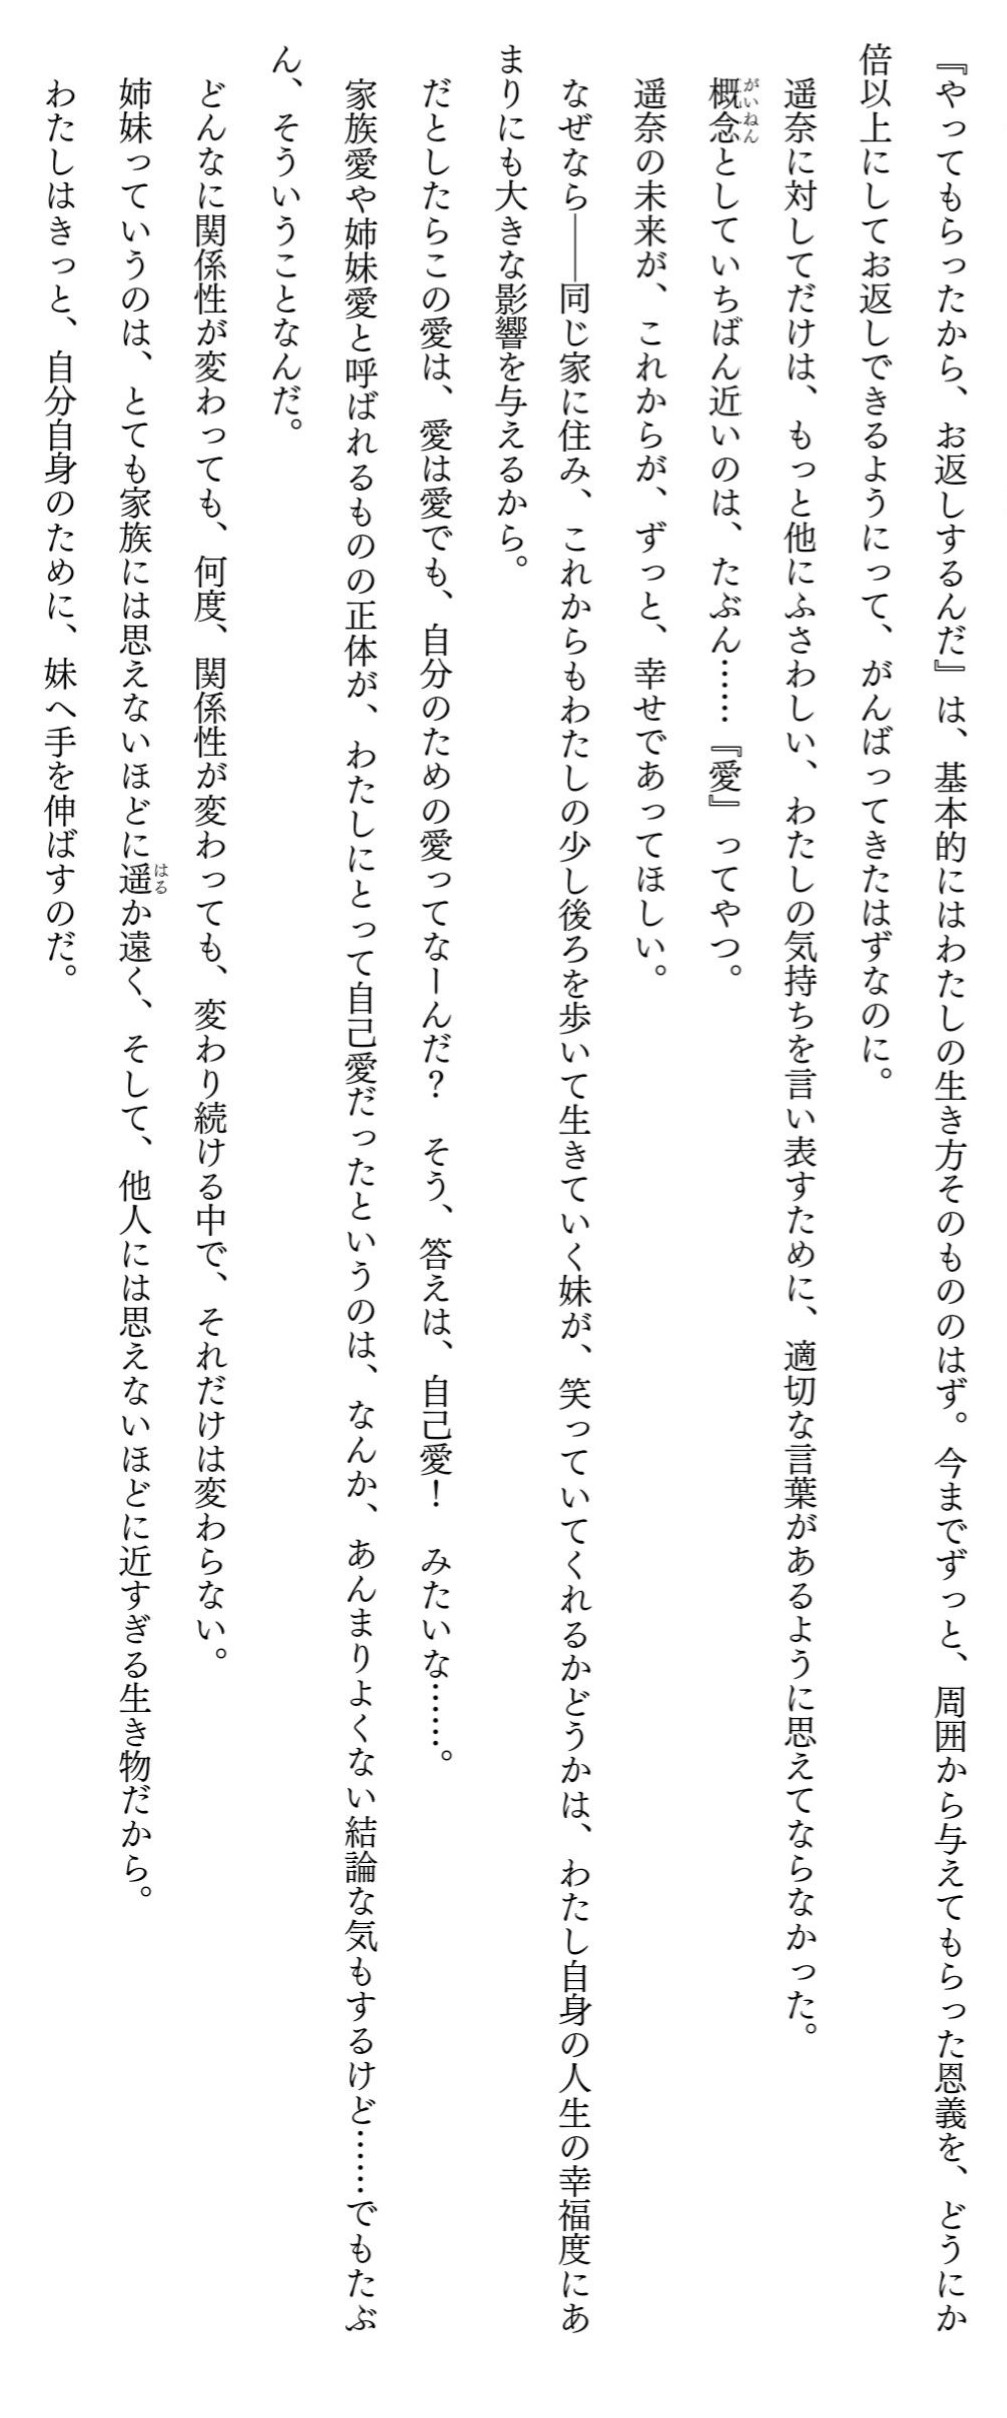 『やってもらったから、お返しするんだ』は、基本的にはわたしの生き方そのもののはず。今までずっと、周囲から与えてもらった恩義を、どうにか
倍以上にしてお返しできるようにって、がんばってきたはずなのに。
　遥奈に対してだけは、もっと他にふさわしい、わたしの気持ちを言い表すために、適切な言葉があるように思えてならなかった。
　概念としていちばん近いのは、たぶん……『愛』ってやつ。
　遥奈の未来が、これからが、ずっと、幸せであってほしい。
　なぜなら――同じ家に住み、これからもわたしの少し後ろを歩いて生きていく妹が、笑っていてくれるかどうかは、わたし自身の人生の幸福度にあ
まりにも大きな影響を与えるから。
　だとしたらこの愛は、愛は愛でも、自分のための愛ってなーんだ？　そう、答えは、自己愛！　みたいな……。
　家族愛や姉妹愛と呼ばれるものの正体が、わたしにとって自己愛だったというのは、なんか、あんまりよくない結論な気もするけど……でもたぶ
ん、そういうことなんだ。
　どんなに関係性が変わっても、何度、関係性が変わっても、変わり続ける中で、それだけは変わらない。
　姉妹っていうのは、とても家族には思えないほどに遥か遠く、そして、他人には思えないほどに近すぎる生き物だから。
　わたしはきっと、自分自身のために、妹へ手を伸ばすのだ。